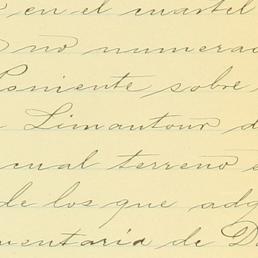 en el cuartel
no numerad
Poniente sobre
Limantour d
cual terreno e
de los que adq
mentaria de D